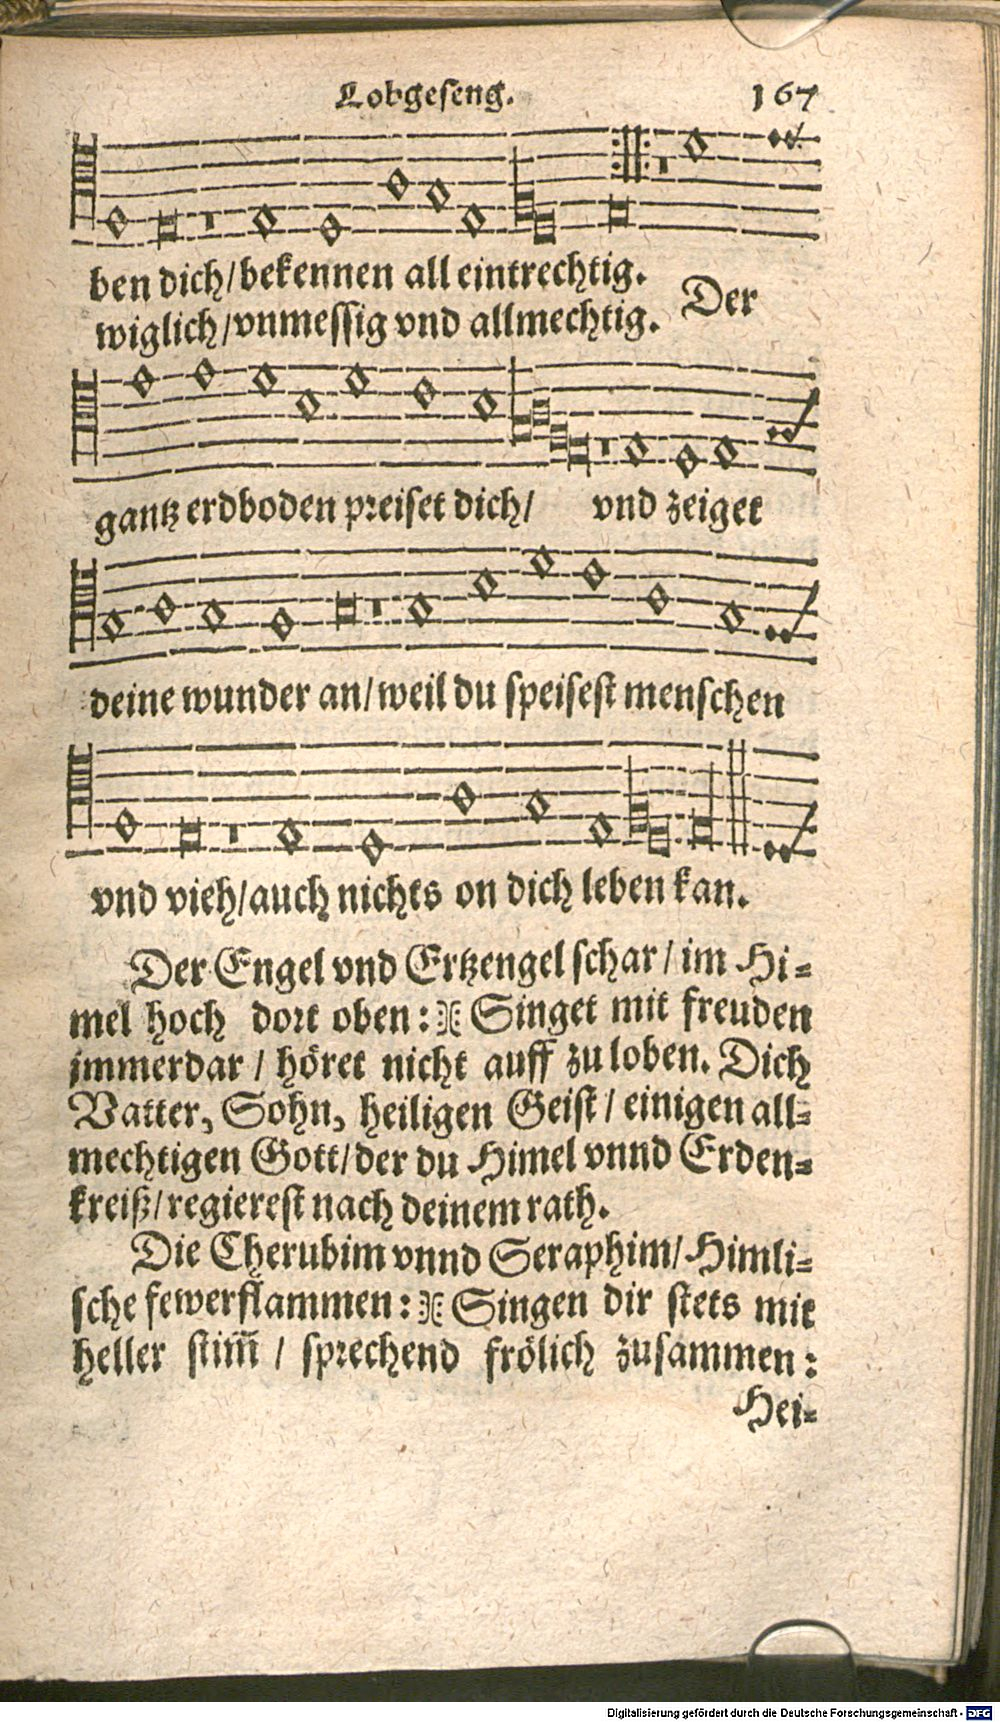 Lobgeseng. 167
ben dich/bekennen all eintrechtig.
wiglich/vnmessig vnd allmechtig. Der
gantz erdboden preiset dich/ vnd zeiget
deine wunder an/weil du speisest menschen
vnd vieh/auch nichts on dich leben kan.
Der Engel vnd Ertzengel schar/im Hi=
mel hoch dort oben: Singet mit freuden
jmmerdar/ höret nicht auff zu loben. Dich
Vatter, Sohn, heiligen Geist/einigen all=
mechtigen Gott/der du Himel vnnd Erden=
kreiß/regierest nach deinem rath.
Die Cherubim vnnd Seraphim/Himli=
sche fewerflammen: Singen dir stets mit
heller stim̄/ sprechend frölich zusammen:
Hei=
Digitalisierung gefördert durch die Deutsche Forschungsgemeinschaft - DFG